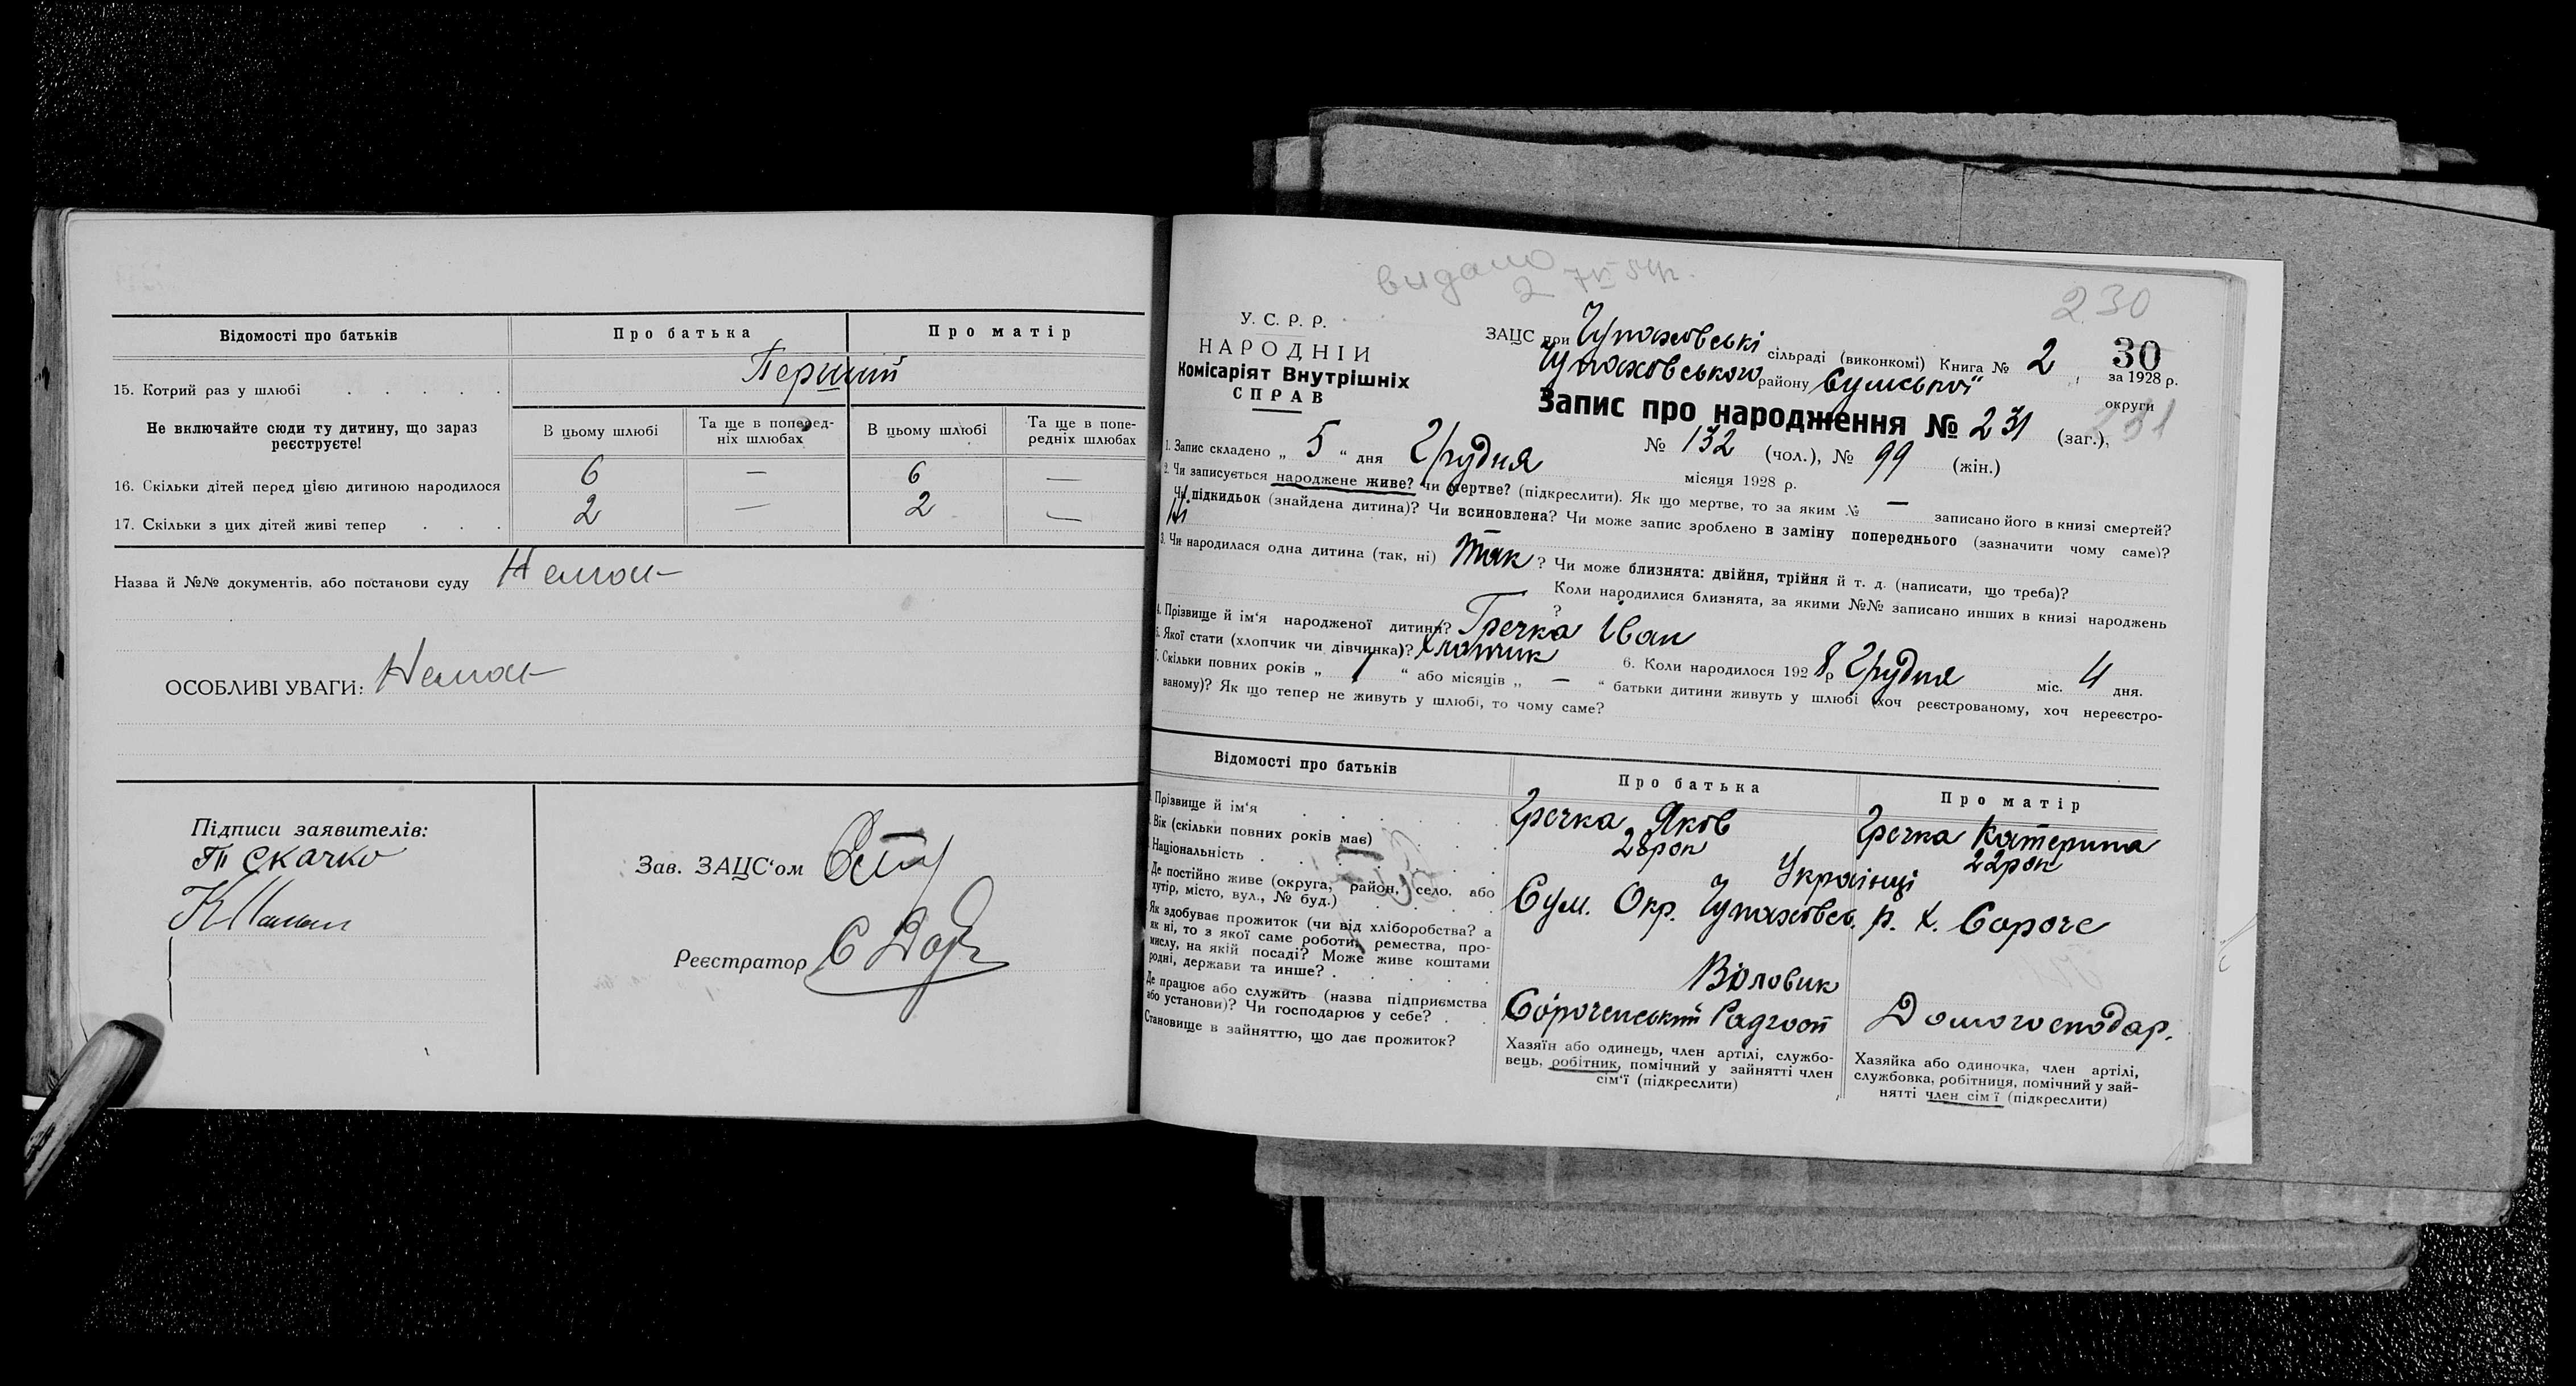 Відомості про батьків
Про батька
Про матір
15. Котрий раз у шлюбі . . . . .
Перший
Не включайте сюди ту дитину, що зараз реєструєте!
В цьому шлюбі
Та ще в поперед-
ніх шлюбах
В цьому шлюбі
Та ще в попе-
редніх шлюбах
16. Скільки дітей перед цією дитиною народилося
6 — 6 —
17. Скільки з цих дітей живі тепер . . .
2 — 2 —
Назва й №№ документів, або постанови суду Немає
ОСОБЛИВІ УВАГИ: Немає
Підписи заявителів:
Скачко
Зав. ЗАЦС'ом
Реєстратор
видано
2
230
У. С. Р. Р.
НАРОДНІЙ
Комісаріят Внутрішніх
СПРАВ
ЗАЦС при Чупаховські сільраді (виконкомі) Книга № 2, 30
Чупаховського району Сумської за 1928 р.
округи
Запис про народження № 231 (заг.),
231
№ 132 (чол.), № 99 (жін.)
1. Запис складено „ 5 “ дня Грудня місяця 1928 р.
2. Чи записується народжене живе? чи мертве? (підкреслити). Як що мертве, то за яким № — записано його в книзі смертей?
Чи підкидьок (знайдена дитина)? Чи всиновлена? Чи може запис зроблено в заміну попереднього (зазначити чому саме)?
Ні
3. Чи народилася одна дитина (так, ні) Так ? Чи може близнята: двійня, трійня й т. д. (написати, що треба)?
Коли народилися близнята, за якими №№ записано инших в книзі народжень
?
4. Прізвище й ім'я народженої дитини? Гречка Іван
5. Якої стати (хлопчик чи дівчинка)? Хлопчик 6. Коли народилося 1928 р Грудня міс. 4 дня.
7. Скільки повних років „ “ або місяців „ — “ батьки дитини живуть у шлюбі (хоч реєстрованому, хоч нереєстро-
ваному)? Як що тепер не живуть у шлюбі, то чому саме?
Відомості про батьків
Про батька
Про матір
Прізвище й ім'я . . . . .
Гречка Яков
Гречка Катерина
Вік (скільки повних років має) . . .
28 рок
22 рок
Національність . . . . .
Українці
Де постійно живе (округа, район, село, або
хутір, місто, вул., № буд.) . . . .
Сум. Окр. Чупаховсь. р. х. Сороче
Як здобуває прожиток (чи від хліборобства? а
як ні, то з якої саме роботи, ремества, про-
мислу, на якій посаді? Може живе коштами
родні, держави та инше? . . . .
Воловик
Де працює або служить (назва підприємства
або установи)? Чи господарює у себе? . .
Сороченський Радгосп
Домогосподар.
Становище в зайняттю, що дає прожиток?
Хазяїн або одинець, член артілі, службо-
вець, робітник, помічний у зайнятті член
сім'ї (підкреслити)
Хазяйка або одиночка, член артілі,
службовка, робітниця, помічний у зай-
нятті член сім'ї (підкреслити)